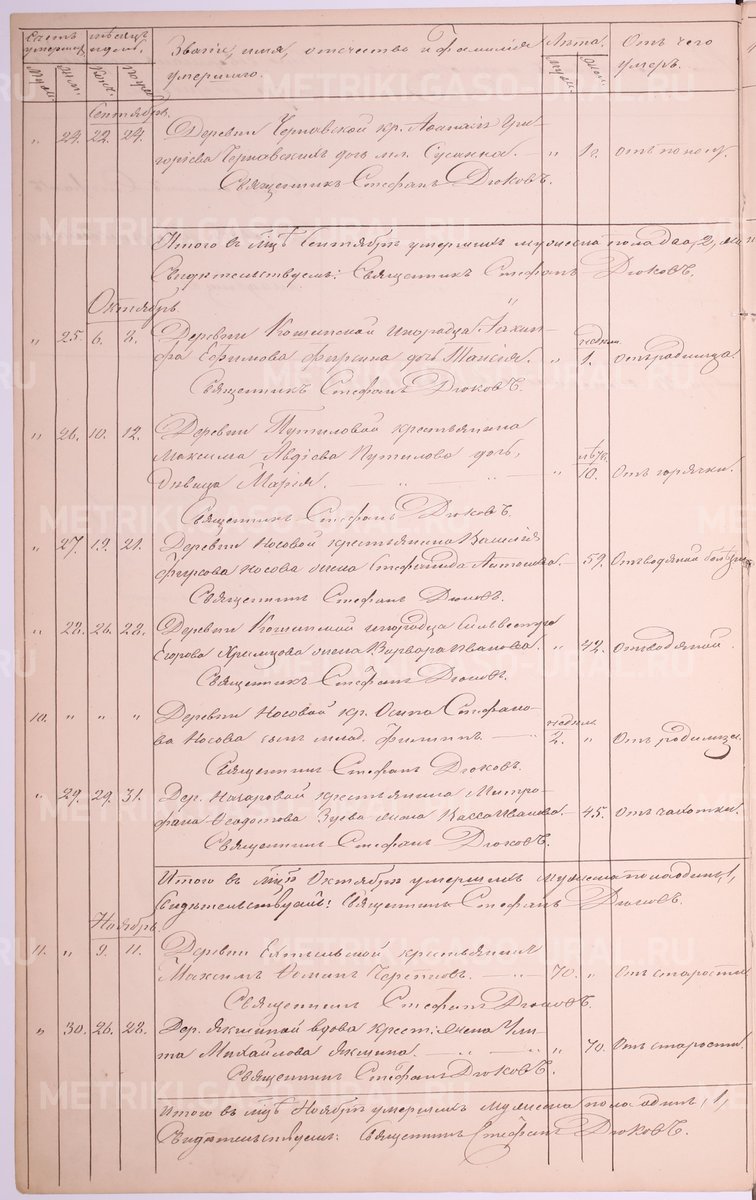 Счетъ умершихъ. Мѣсяцъ и день. Званіе, имя, отчество и фамилія Лѣта. Отъ чего
умершаго. умеръ.
Муж. Жен. Конч. Погр. Муж. Жен.
Сентябрь.
" 24. 22. 24. Деревни Чернавской кр. Аѳанасія Гри-
горіева Чернавскихъ дочь мл. Сусанна. — " 1 г. отъ поносу.
Священникъ Стефанъ Дюковъ.
Итого въ мцѣ Сентябрѣ умершихъ мужеска пола два, 2,
Свидѣтельствуемъ: Священникъ Стефанъ Дюковъ.
Октябрь.
" 25. 6. 8. Деревни Кошинской инородца
Ефимова дочь Таисія. " недѣли 1. отъ родимца.
Священникъ Стефанъ Дюковъ.
" 26. 10. 12. Деревни Путиловой крестьянина
Максима Авдіева Путилова дочь,
дѣвица Марія. — " — " — " 10. Отъ горячки.
Священникъ Стефанъ Дюковъ.
" 27. 19. 21. Деревни Носовой крестьянина Василія
Фирсова Носова жена Стефанида Антонова. " 59. Отъ водяной болѣзни
Священникъ Стефанъ Дюковъ.
" 28. 26. 28. Деревни Кошинской инородца Сильвестра
Егорова жена Варвара Иванова. " 42. отъ водяной.
Священникъ Стефанъ Дюковъ.
10. " " " Деревни Носовой кр. Осипа Стефано-
ва Носова сынъ млад. Филиппъ. — " — недѣли 2. " Отъ родимца.
Священникъ Стефанъ Дюковъ.
" 29. 29. 31. Дер. Назаровой крестьянина Митро-
фана Ѳеодотова Зуева жена Васса Иванова. — 45. Отъ чахотки.
Священникъ Стефанъ Дюковъ.
Итого въ мцѣ Октябрѣ умершихъ мужеска пола одинъ 1,
Свидѣтельствуемъ: Священникъ Стефанъ Дюковъ.
Ноябрь.
11. " 9. 11. Деревни крестьянинъ
Максимъ Черепановъ. — " — 70. " Отъ старости
Священникъ Стефанъ Дюковъ.
" 30. 26. 28. Дер. Якшиной вдова крест. жена Ули-
та Михайлова Якшина. — " — " 70. Отъ старости
Священникъ Стефанъ Дюковъ.
Итого въ мцѣ Ноябрѣ умершихъ мужеска пола одинъ, 1,
Свидѣтельствуемъ: Священникъ Стефанъ Дюковъ.
METRIKI.GASO-URAL.RU